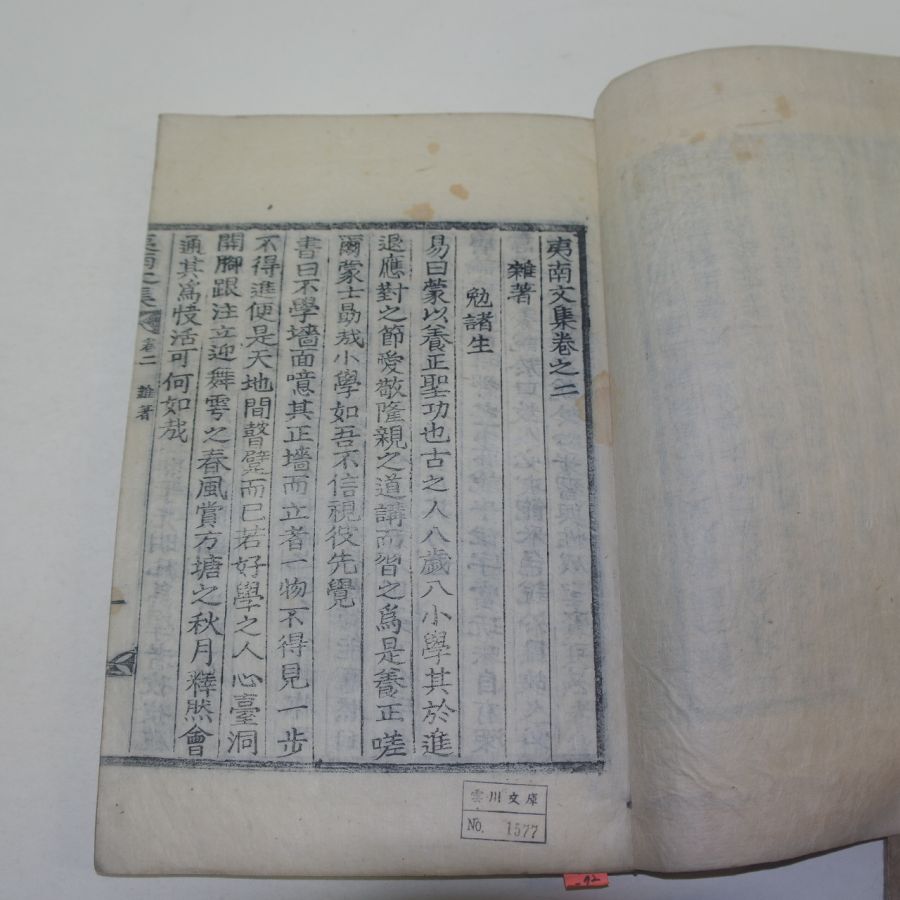 夷南文集卷之二
雜著
勉諸生
易曰蒙以養正聖功也古之人八歲八小學其於進
退應對之節愛敬隆親之道講而習之爲是養正嗟
爾蒙士勗哉小學如吾不信視彼先覺
書曰不學墻面噫其正墻而立者一物不得見一步
不得進便是天地間瞽躄而已若好學之人心臺洞
開腳跟注立迎舞雩之春風賞方塘之秋月釋然會
通其爲快活可何如哉
夷南文集 卷二 雜著 一
雲川文庫
No. 1577
-42